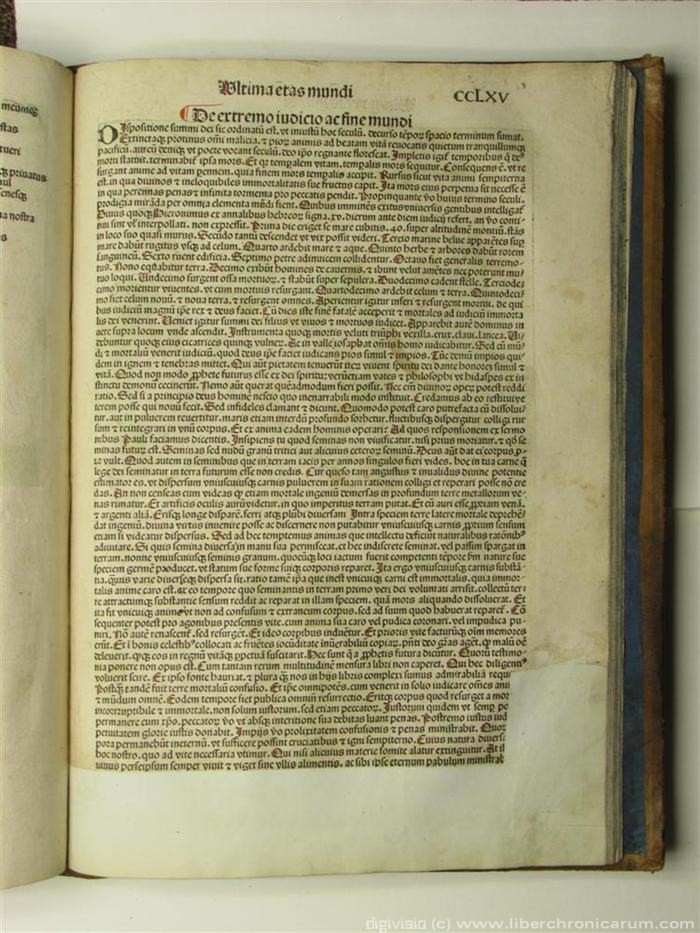 meumeq
stas
tueri
qz priuatus
nul
genesqz
na nostra
os
Ultima etas mundi
CCLXV
De extremo iudicio ac fine mundi
Dispositione summi dei sic ordinatu est. vt iniustu hoc seculu. decurso tepor spacio terminum sumat.
Extinctaqz protinus omi malicia. et pior animis ad beatam vita reuocatis quietum tranquillumqz
pacificu. aureu deniqz vt poete vocant seculu. deo ipo regnante florescat. Impletis igit temporibus
morti statuit. terminabit ipsa mors. Et qz tempalem vitam. tempalis mors sequitur. Consequens e. vt re
surgant anime ad vitam pennem. quia finem mors tempalis accipit. Rursus sicut vita animi sempiterna
est. in qua diuinos et ineloquibiles immortalitatis sue fructus capit. Ita mors eius perpetua sit necesse e
in qua perennas penas et infinita tormenta pro peccatis pendit. Propinquante vo huius termino seculi.
prodigia miranda per omnia elementa mundi fient. Quibus imminens exitus vniuersis gentibus intelligat
Diuus quoqz Hieronimus ex annalibus hebreor signa. xv. dierum ante diem iudicij refert. an vo conti
nui sint vl interpollati. non expressit. Prima die eriget se mare cubitis. 40. super altitudine montiu. stas
in loco suo quasi murus. Secudo tantu descendet vt vix possit videri. Tercio marine belue apparetes sup
mare dabut rugitus vsqz ad celum. Quarto ardebit mare et aque. Quinto herbe et arbores dabut rorem
sanguineu. Sexto ruent edificia. Septimo petre adinuicem collidentur. Octauo fiet generalis terremo
tus. Nono equabitur terra. Decimo exibut homines de cauernis. et ibunt velut ametes nec poterunt mu
tuo loqui. Undecimo surgent ossa mortuor. et stabut super sepulcra. Duodecimo cadent stelle. Terciode
cimo morientur viuentes. vt cum mortuis resurgant. Quartodecimo ardebit celum et terra. Quintodeci
mo fiet celum nouu. et noua terra. et resurgent omnes. Aperientur igitur inferi et resurgent mortui. de qui
bus iudiciu magnu ipe rex et deus faciet. Cu dies iste finem fatale acceperit et mortales ad iudiciu immorta
lis dei venerint. Veniet igitur summi dei filius vt viuos et mortuos iudicet. Apparebit aute dominus in
aere supra locum vnde ascendit. Instrumenta quoqz mortis veluti triuphi vexilla. crux. claui. lancea. Ui
debuntur quoqz eius cicatrices quinqz vulner. Ac in valle iosaphat omis homo iudicabitur.
di et mortaliu venerit iudiciu. quod deus ipe faciet iudicans pios simul et impios. Tuc demu impios qui
dem in ignem et tenebras mittet. Qui aut pietatem tenuerut iteru viuent spiritu dei dante honores simul et
vita. Quod non modo pphete futurus esse ex dei spiritu: verumetiam vates et philosophi vt hidaspes ex in
stinctu demonu cecinerut. Nemo aut querat quemadmodum fieri possit. Nec em diuinor oper potest reddi
ratio. Sed si a principio deus homine nescio quo inenarrabili modo instituit. Credamus ab eo restitui ve
terem posse qui nouu fecit. Sed infideles clamant et dicunt. Quomodo potest caro putrefacta cu dissolui
tur. aut in puluerem reuertitur. maris etiam interdu profundo sorbetur. fluctibusqz dispergitur colligi rur
sum et reintegrari in vnu corpus. Et ex anima eadem hominis operari? Ad quos responsionem ex sermo
nibus Pauli faciamus dicentis. Insipiens tu quod seminas non viuificatur. nisi prius moriatur.
minas futur est. Seminas sed nudu granu tritici aut alicuius ceteror seminu. Deus aut dat ei corpus p
ut vult. Quod autem in seminibus que in terram iacis per annos singulos fieri vides. hoc in tua carne
lege dei seminatur in terra futurum esse non credis. Cur queso tam angustus et inualidus diuine potentie
estimator es. vt dispersum vniuscuiusqz carnis puluerem in suam rationem colligi et reperari posse non cre
das. An non censeas cum videas
nas rimatur. Et artificis oculis auru videtur. in quo imperitus terram putat.
et argenti alia. Erisqz longe dispare. ferri atqz plubi diuersam
dat ingeniu. diuina virtus inuenire posse ac discernere non putabitur vniuscuiusqz carnis pprium sensum
etiam si videatur dispersus. Sed ad hec temptemus animas que intellectu deficiut naturalibus rationib
adiuuare. Si quis semina diuersa in manu sua permisceat. et hec indiscrete seminat. vel passim spargat in
terram. nonne vniuscuiusqz seminis granum. quocuqz loci iactum fuerit competenti tepore
speciem germe pducet. vt statum sue forme suiqz corporis reparet. Ita ergo vniuscuiusqz carnis substa
tia. quis varie diuerseqz dispersa sit. ratio tame ipa que inest vnicuiqz carni est immortalis. quia immor
talis anime caro est. ex eo tempore quo seminantis in terram primo veri dei voluntati arrisit. collectu terr
re attractumqz substantie sensum reddit ac reparat in illam speciem. qua mors aliquando dissoluerat. Et
ita fit vnicuiqz anime vt non ad confusum et extraneum corpus. sed ad suum quod habuerat reparet.
sequenter potest pro agonibus presentis vite. cum anima sua caro vel pudica coronari. vel impudica pu
niri. No aute renascent. sed resurget. Et ideo corpibus induetur. Et prioris vite facturuqz oim memores
erut. Et i bonis celestib collocati ac fruetes iocuditate inuerabiliu copiar. pnti deo gras aget.
deleuerit. qz eos in regnu vitaqz ppetua suscitarit. Hec sunt a pphetis futura dicutur. Quoru testimo
nia ponere non opus est. Cum tantam rerum multitudine mensura libri non caperet. Qui hec diligent
voluerit scire. Ex ipso fonte hauriat. et plura qz nos in hijs libris complexi sumus admirabilia requi
Postqz tande fuit terre mortaliu confusio. Et ipe omnipotes. cum venerit in solio iudicare omes
et mudum omne. Eodem tempore fiet publica omniu resurrectio. Eritqz corpus quod resurget a mor
incorruptibile et immortale. non solum iustorum. sed etiam peccator. Iustorum quidem vt semp po
permanere cum xpo. peccator vo vt absqz interitione sua debitas luant penas. Postremo iustis iud
petuitatem glorie iustis donabit. Impijs vo prolixitatem confusionis et penas ministrabit. Quor
pora permanebut ineternu. vt sufficere possint cruciatibus et igni sempiterno. Cuius natura diuers
hoc nostro. quo ad vite necessaria vtimur. Qui nisi alicuius materie fomite alatur extinguitur. At il
uinus perseipsum semper viuit et viget sine vllis alimentis. ac sibi ipse eternum pabulum ministrat
digivisio (c) www.liberchronicarum.com